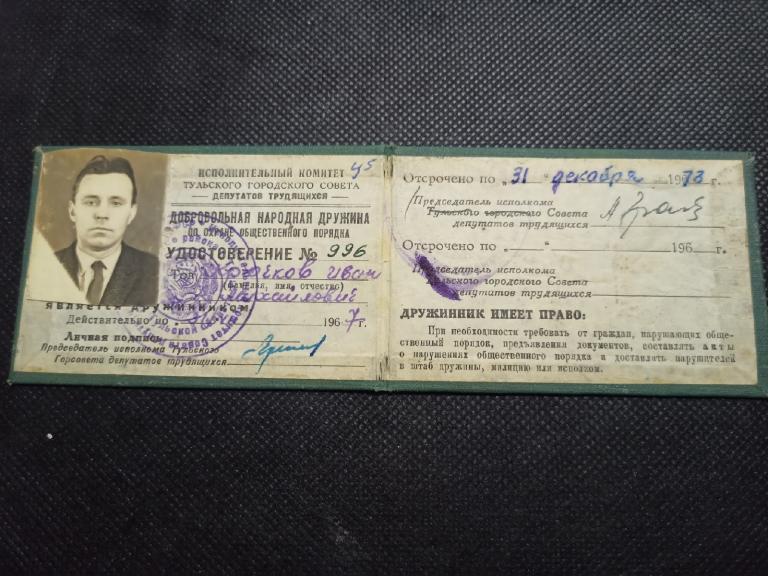 45
ИСПОЛНИТЕЛЬНЫЙ КОМИТЕТ
ТУЛЬСКОГО ГОРОДСКОГО СОВЕТА
— ДЕПУТАТОВ ТРУДЯЩИХСЯ —
ДОБРОВОЛЬНАЯ НАРОДНАЯ ДРУЖИНА
ПО ОХРАНЕ ОБЩЕСТВЕННОГО ПОРЯДКА
УДОСТОВЕРЕНИЕ № 996
Тов. Иван
(фамилия, имя, отчество)
Михайлович
ЯВЛЯЕТСЯ ДРУЖИННИКОМ
Действительно по 1967 г.
Личная подпись
Председатель исполкома Тульского
Горсовета депутатов трудящихся
Отсрочено по „31 декабря 1973 г.
Председатель исполкома
Тульского городского Совета
депутатов трудящихся
Отсрочено по „—“ 196 г.
Председатель исполкома
Тульского городского Совета
депутатов трудящихся
ДРУЖИННИК ИМЕЕТ ПРАВО:
При необходимости требовать от граждан, нарушающих обще-
ственный порядок, предъявления документов, составлять акты
о нарушениях общественного порядка и доставлять нарушителей
в штаб дружины, милицию или исполком.